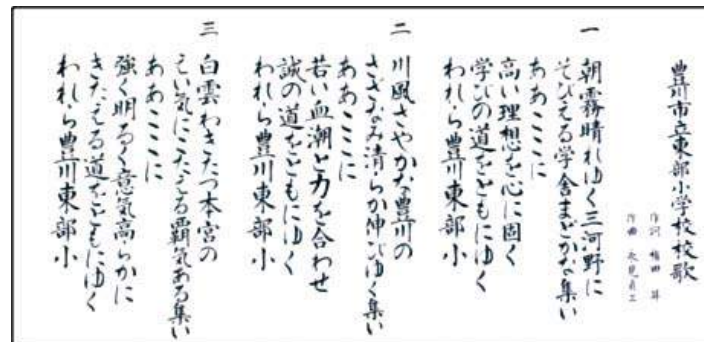 豊川市立東部小学校校歌
作詞
作曲
一
朝霧晴れゆく三河野に
そびえる学舎まどかな集い
ああここに
高い理想を心に固く
学びの道をともにゆく
われら豊川東部小
二
川風さやかな豊川の
さざなみ清らか伸びゆく集い
ああここに
若い血潮と力を合わせ
誠の道をともにゆく
われら豊川東部小
三
白雲わきたつ本宮の
せい気にこたえる覇気ある集い
ああここに
強く明るく意気高らかに
きたえる道をともにゆく
われら豊川東部小